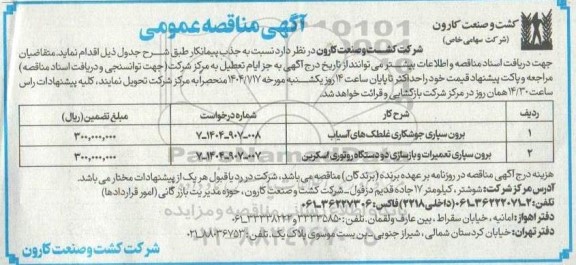 کشت و صنعت کارون
(شرکت سهامی خاص)
آگهی مناقصه عمومی
شرکت کشت و صنعت کارون در نظر دارد نسبت به جذب پیمانکار طبق شرح جدول ذیل اقدام نماید. متقاضیان
جهت دریافت اسناد مناقصه و اطلاعات بیشتر می توانند از تاریخ درج آگهی به جز ایام تعطیل به مرکز شرکت (جهت توانسنجی و دریافت اسناد مناقصه)
مراجعه و پاکت پیشنهاد قیمت خود را حداکثر تا پایان ساعت ۱۴ روز یکشنبه مورخه ۱۴۰۴/۷/۱۷ منحصرا به مرکز شرکت تحویل نمایند، کلیه پیشنهادات راس
ساعت ۱۴/۳۰ همان روز در مرکز شرکت بازگشایی و قرائت خواهد شد.
ردیف شرح کار شماره درخواست مبلغ تضمین (ریال)
۱ برون سپاری جوشکاری غلطک های آسیاب ۷-۱۴۰۴-۹۰۷-۰۰۸ ۳۰۰,۰۰۰,۰۰۰
۲ برون سپاری تعمیرات و بازسازی دو دستگاه روتوری اسکرین ۷-۱۴۰۴-۹۰۷-۰۰۷ ۳۰۰,۰۰۰,۰۰۰
هزینه درج آگهی مناقصه در روزنامه بر عهده برنده (برندگان) مناقصه می باشد، شرکت در رد یا قبول هر یک از پیشنهادات مختار می باشد.
آدرس مرکز شرکت: شوشتر، کیلومتر ۱۷ جاده قدیم دزفول - شرکت کشت و صنعت کارون، حوزه مدیریت بازرگانی (امور قراردادها)
تلفن: ۲-۳۶۲۲۲۰۷۱-۰۶۱ (داخلی ۲۲۱۸) فاکس: ۳۶۲۲۷۳۰۶-۰۶۱
دفتر اهواز: امانیه، خیابان سقراط، بین عارف ولقمان، تلفن: ۳۳۳۳۵۸۵۰ و ۳۳۳۳۸۲۶۴-۰۶۱
دفتر تهران: خیابان کردستان شمالی، شیراز جنوبی - بن بست موسوی پلاک یک. تلفن: ۸۸۰۳۶۷۵۳-۰۲۱
شرکت کشت و صنعت کارون